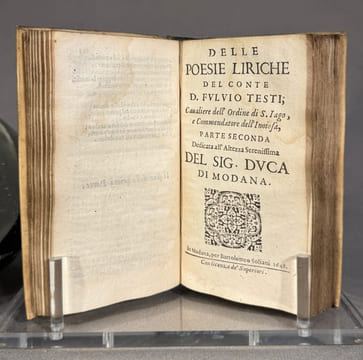 DELLE
POESIE LIRICHE
DEL CONTE
D. FVLVIO TESTI;
Caualiere dell'Ordine di S. Iago,
e Commendatore dell'Inoiosa,
PARTE SECONDA
Dedicata all'Altezza Serenissima
DEL SIG. DVCA
DI MODANA.
In Modana, per Bartolomeo Soliani 1648.
Con licenza de' Superiori.